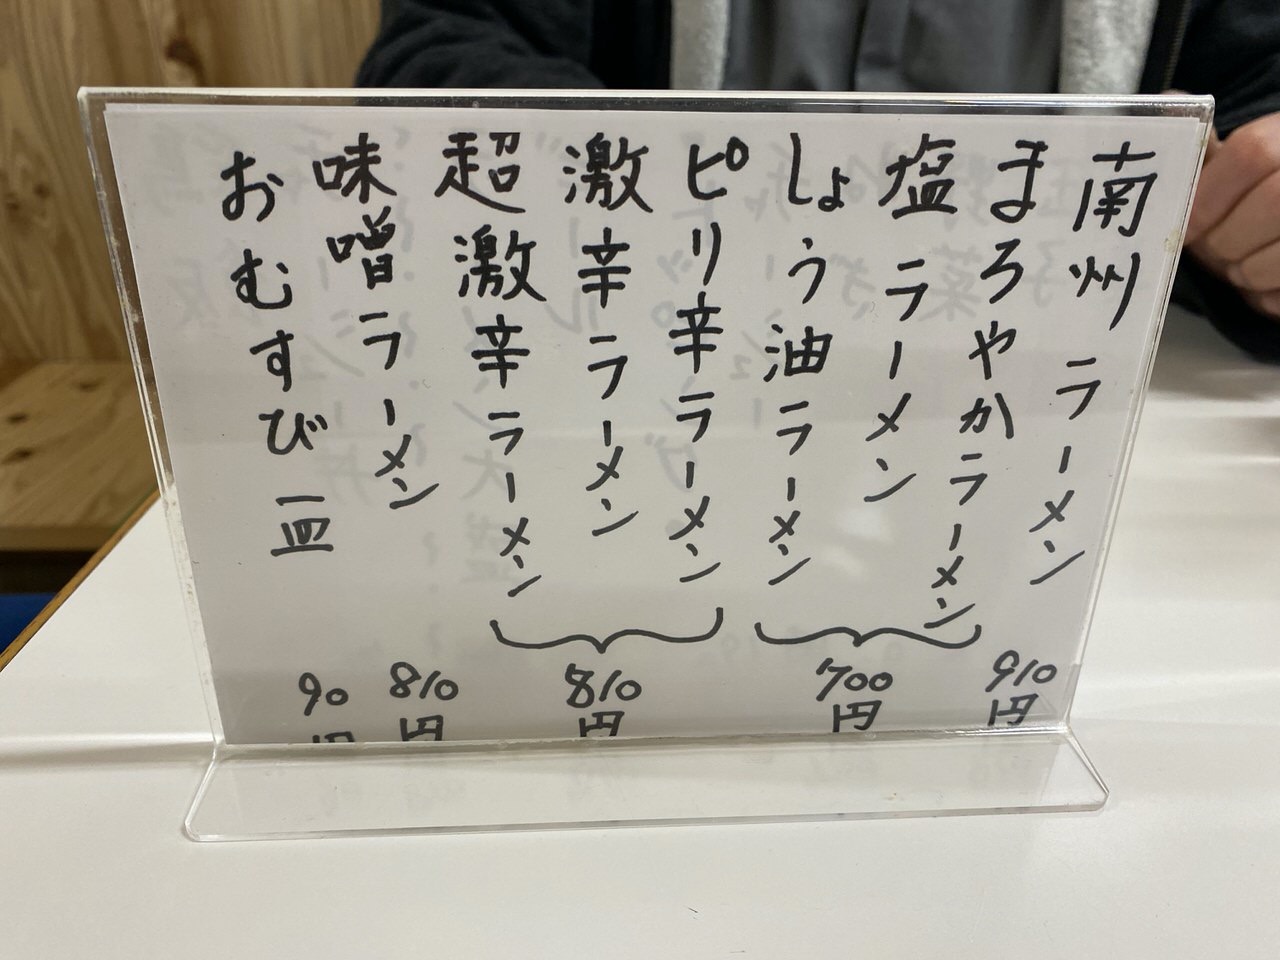 南州ラーメン 910円
まろやかラーメン
塩ラーメン
しょう油ラーメン
700円
ピリ辛ラーメン
激辛ラーメン
超激辛ラーメン
810円
味噌ラーメン 810円
おむすび一皿 90円